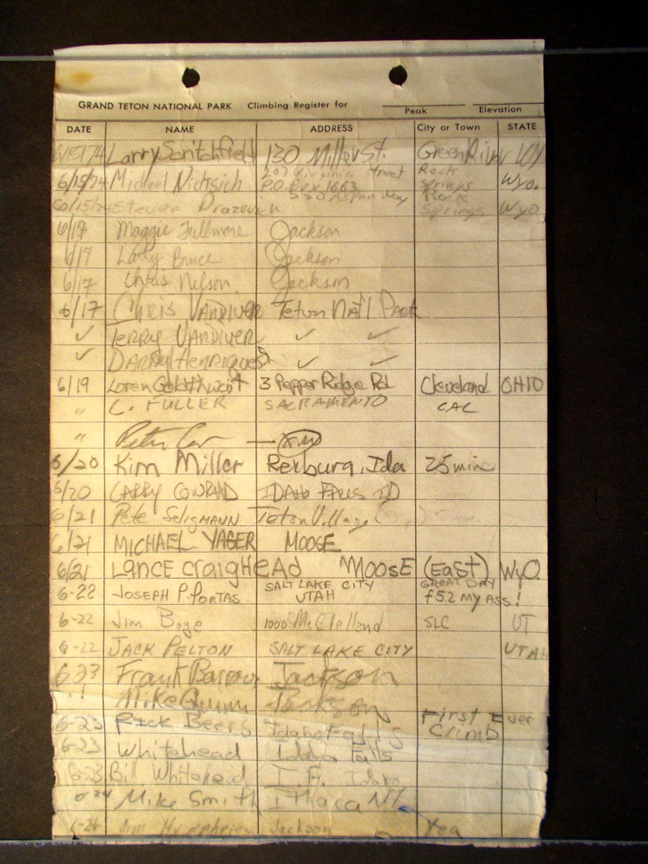 GRAND TETON NATIONAL PARK Climbing Register for
Peak Elevation
DATE NAME ADDRESS City or Town STATE
6/15/74 Larry Scritchfield 130 Miller St. Green River WY
6/15/74 Michael 207 Virginia Street P.O. Box 1663 Rock Springs Wyo.
6/15/74 Steven 550 Aspen Way Rock Springs Wyo
6/17 Maggie Fullmore Jackson
6/17 Lady Bruce Jackson
6/17 Chris Nelson Jackson
6/17 CHRIS VANDIVER Teton Nat'l Park
✓ TERRY VANDIVER ✓ ✓
✓ DARRYL HENRIQUES ✓ ✓
6/19 Loren 3 Pepper Ridge Rd. Cleveland OHIO
" C. FULLER SACRAMENTO CAL
" Peter
6/20 Kim Miller Rexburg, Ida 25 min
6/20 LARRY CONRAD IDAHO FALLS ID
6/21 Pete SELIGMANN Teton Village
6/21 MICHAEL YAGER MOOSE
6/21 Lance craigHEAd MOOSE (EAST) WyO.
6-22 JOSEPH P. PORTAS SALT LAKE CITY UTAH GREAT DAY F5.2 MY ASS!
6-22 Jim Boge 1000 McClelland SLC UT
6-22 JACK PELTON SALT LAKE CITY UTAH
6-23 Frank Barrow Jackson
" Mike Quinn Jackson
6-23 Rick Beers Idaho Falls First Ever Climb
6-23 Whitehead Idaho Falls
6-23 Bill Whitehead I. F. Idaho
6-24 Mike Smith Ithaca NY
6-24 Jim Humphries Jackson Yea